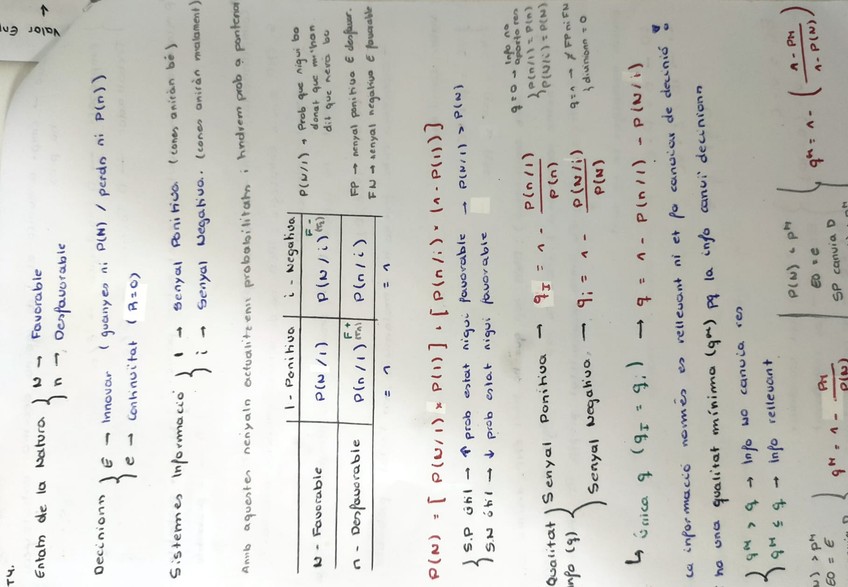 T4.
Valor Enp
Estats de la Natura } N → Favorable
n → Desfavorable
Decisions } E → Innovar (guanyes si P(N) / perds si P(n))
e → continuïtat (R=0)
Sistemes Informació } I → Senyal Positiva (coses aniràn bé)
i → Senyal Negativa. (coses aniràn malament)
Amb aquestes senyals actualitzem probabilitats i tindrem prob a posteriori
I - Positiva | i - Negativa
N - Favorable | P(N/I) | P(N/i) F-
n - Desfavorable | P(n/I) F+ | P(n/i)
= 1 | = 1
P(N/I) → Prob que sigui bo
donat que m'han
dit que sera bo
FP → senyal positiva E desfavor.
FN → senyal negativa E favorable
P(N) = [P(N/I) × P(I)] + [P(N/i) × (1 - P(I))]
} S.P útil → ↑ prob estat sigui favorable → P(N/I) > P(N)
S.N útil → ↓ prob estat sigui favorable
Qualitat info (q) } Senyal Positiva → qI = 1 - P(n/I) / P(n)
Senyal Negativa. → qi = 1 - P(N/i) / P(N)
q=0 → info no aporta res
} P(n/I) = P(n)
P(N/i) = P(N)
q=1 → ∄ FP ni FN
} divisions = 0
↳ única q (qI = qi) → q = 1 - P(n/I) - P(N/i)
La informació només es rellevant si et fa canviar de decisió
una qualitat mínima (qM) pq la info canvi decisions
} qM > q → Info No canvia res
qM ≤ q → Info rellevant
P(N) < PM
EO = e
SP canvia D
qM = 1 - (1 - PM / 1 - P(N))
) > PM
EO = E
qM = 1 - PM / P(N)